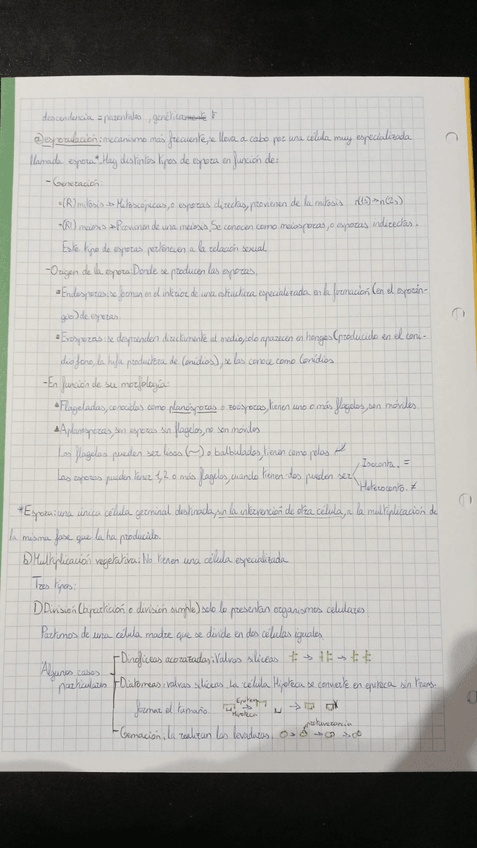 descendencia = parentales, genética
a) esporulación: mecanismo más frecuente, se lleva a cabo por una célula muy especializada
llamada espora*. Hay distintos tipos de espora en función de:
- Generación:
(R!) mitosis → Mitoscópicas, o esporas directas, provienen de la mitosis n(s) → n(2s)
(R!) meiosis → Provienen de una meiosis. Se conocen como meiosporas, o esporas indirectas.
Este tipo de esporas pertenecen a la relación sexual
- Origen de la espora. Donde se producen las esporas.
Endosporas: se forman en el interior de una estructura especializada en la formación (en el esporán-
gio) de esporas
Exosporas: se desprenden directamente al medio, solo aparecen en hongos (producido en el coni-
diofono, la hifa productora de conidios), se las conoce como conidios
- En función de su morfología:
Flageladas, conocidas como planósporas o zoósporas, tienen uno o más flagelos, son móviles
Aplanosporas, son esporas sin flagelos, no son móviles
Los flagelos pueden ser lisos (~) o balbulados, tienen como pelos
Las esporas pueden tener 1, 2 o más flagelos, cuando tienen dos pueden ser
Isoconta. =
Heteroconto. ≠
*Espora: una única célula germinal destinada, sin la intervención de otra célula, a la multiplicación de
la misma fase que la ha producido.
b) Multiplicación vegetativa: No tienen una célula especializada
Tres tipos:
1) División (bipartición o división simple) solo lo presentan organismos celulares.
Partimos de una célula madre que se divide en dos células iguales
Algunos casos
particulares
Dinofíceas acorazadas: Valvas silíceas
Diatomeas: valvas silíceas. La célula Hipoteca se convierte en epiteca sin trans-
formar el tamaño.
Epiteca
Hipoteca
Gemación, la realizan las levaduras,